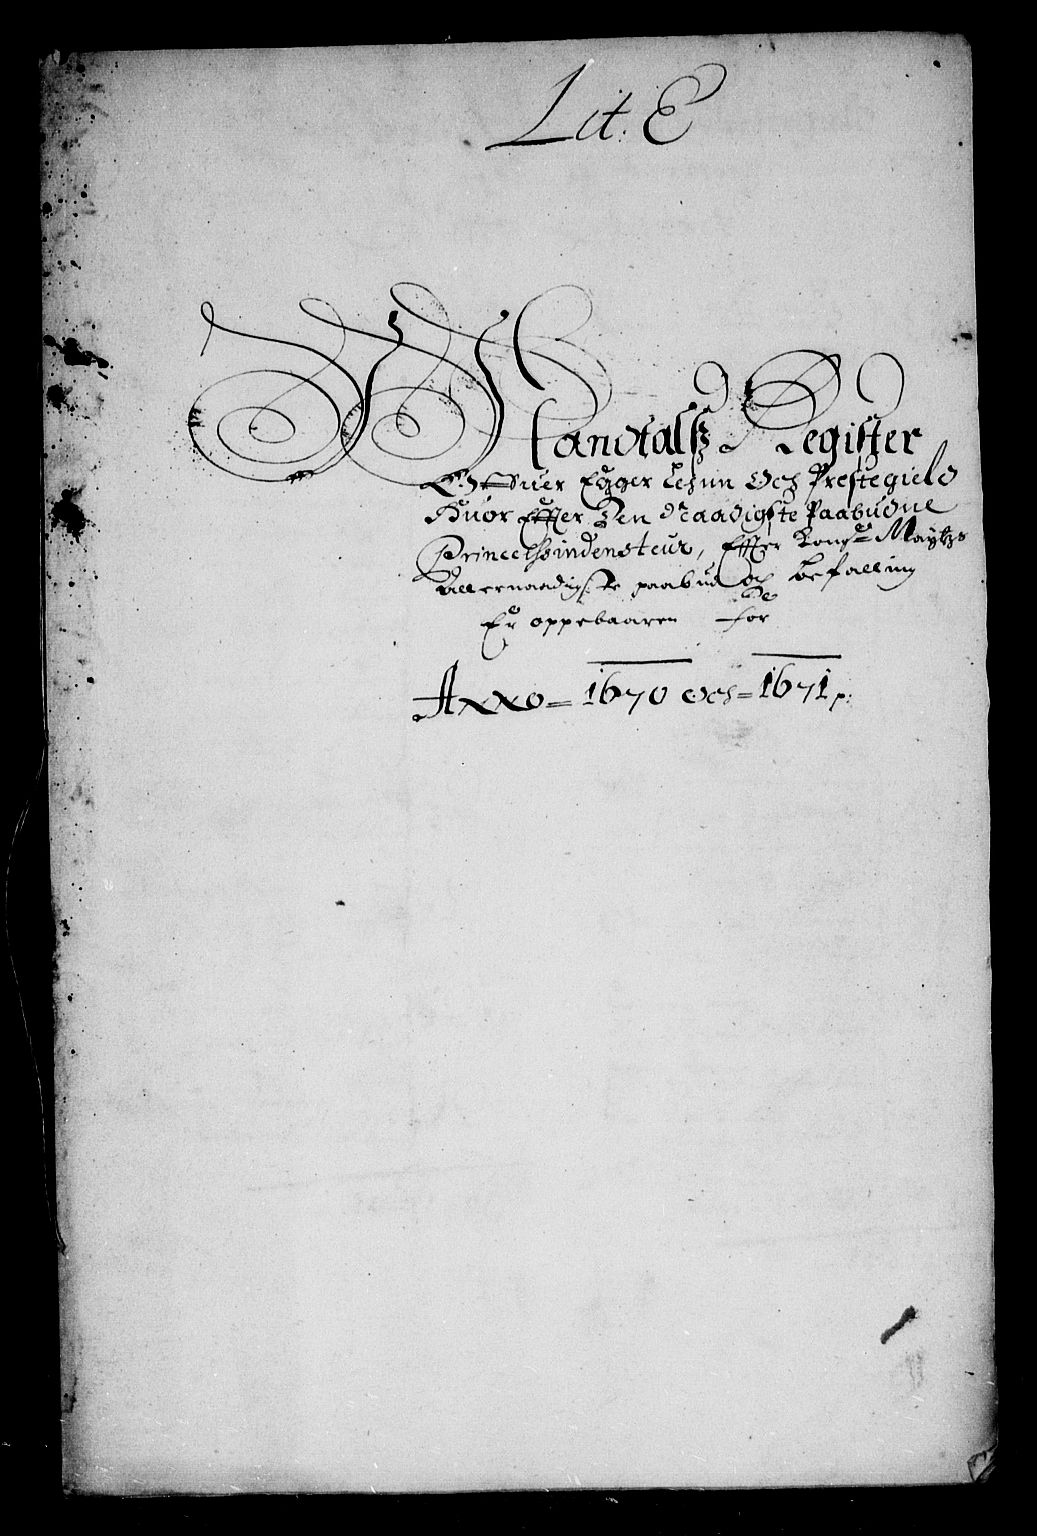 Lit: E
Mandtals Register
Offuer Egger Lehnn Och Prestegield
Huor Effter den Naadigste Paabudne
Princessindensteur, Effter Kongl Maytz
Allernaadigste paabud Och befalling
Er oppebaaren for
Anno = 1670 Och = 1671 p: